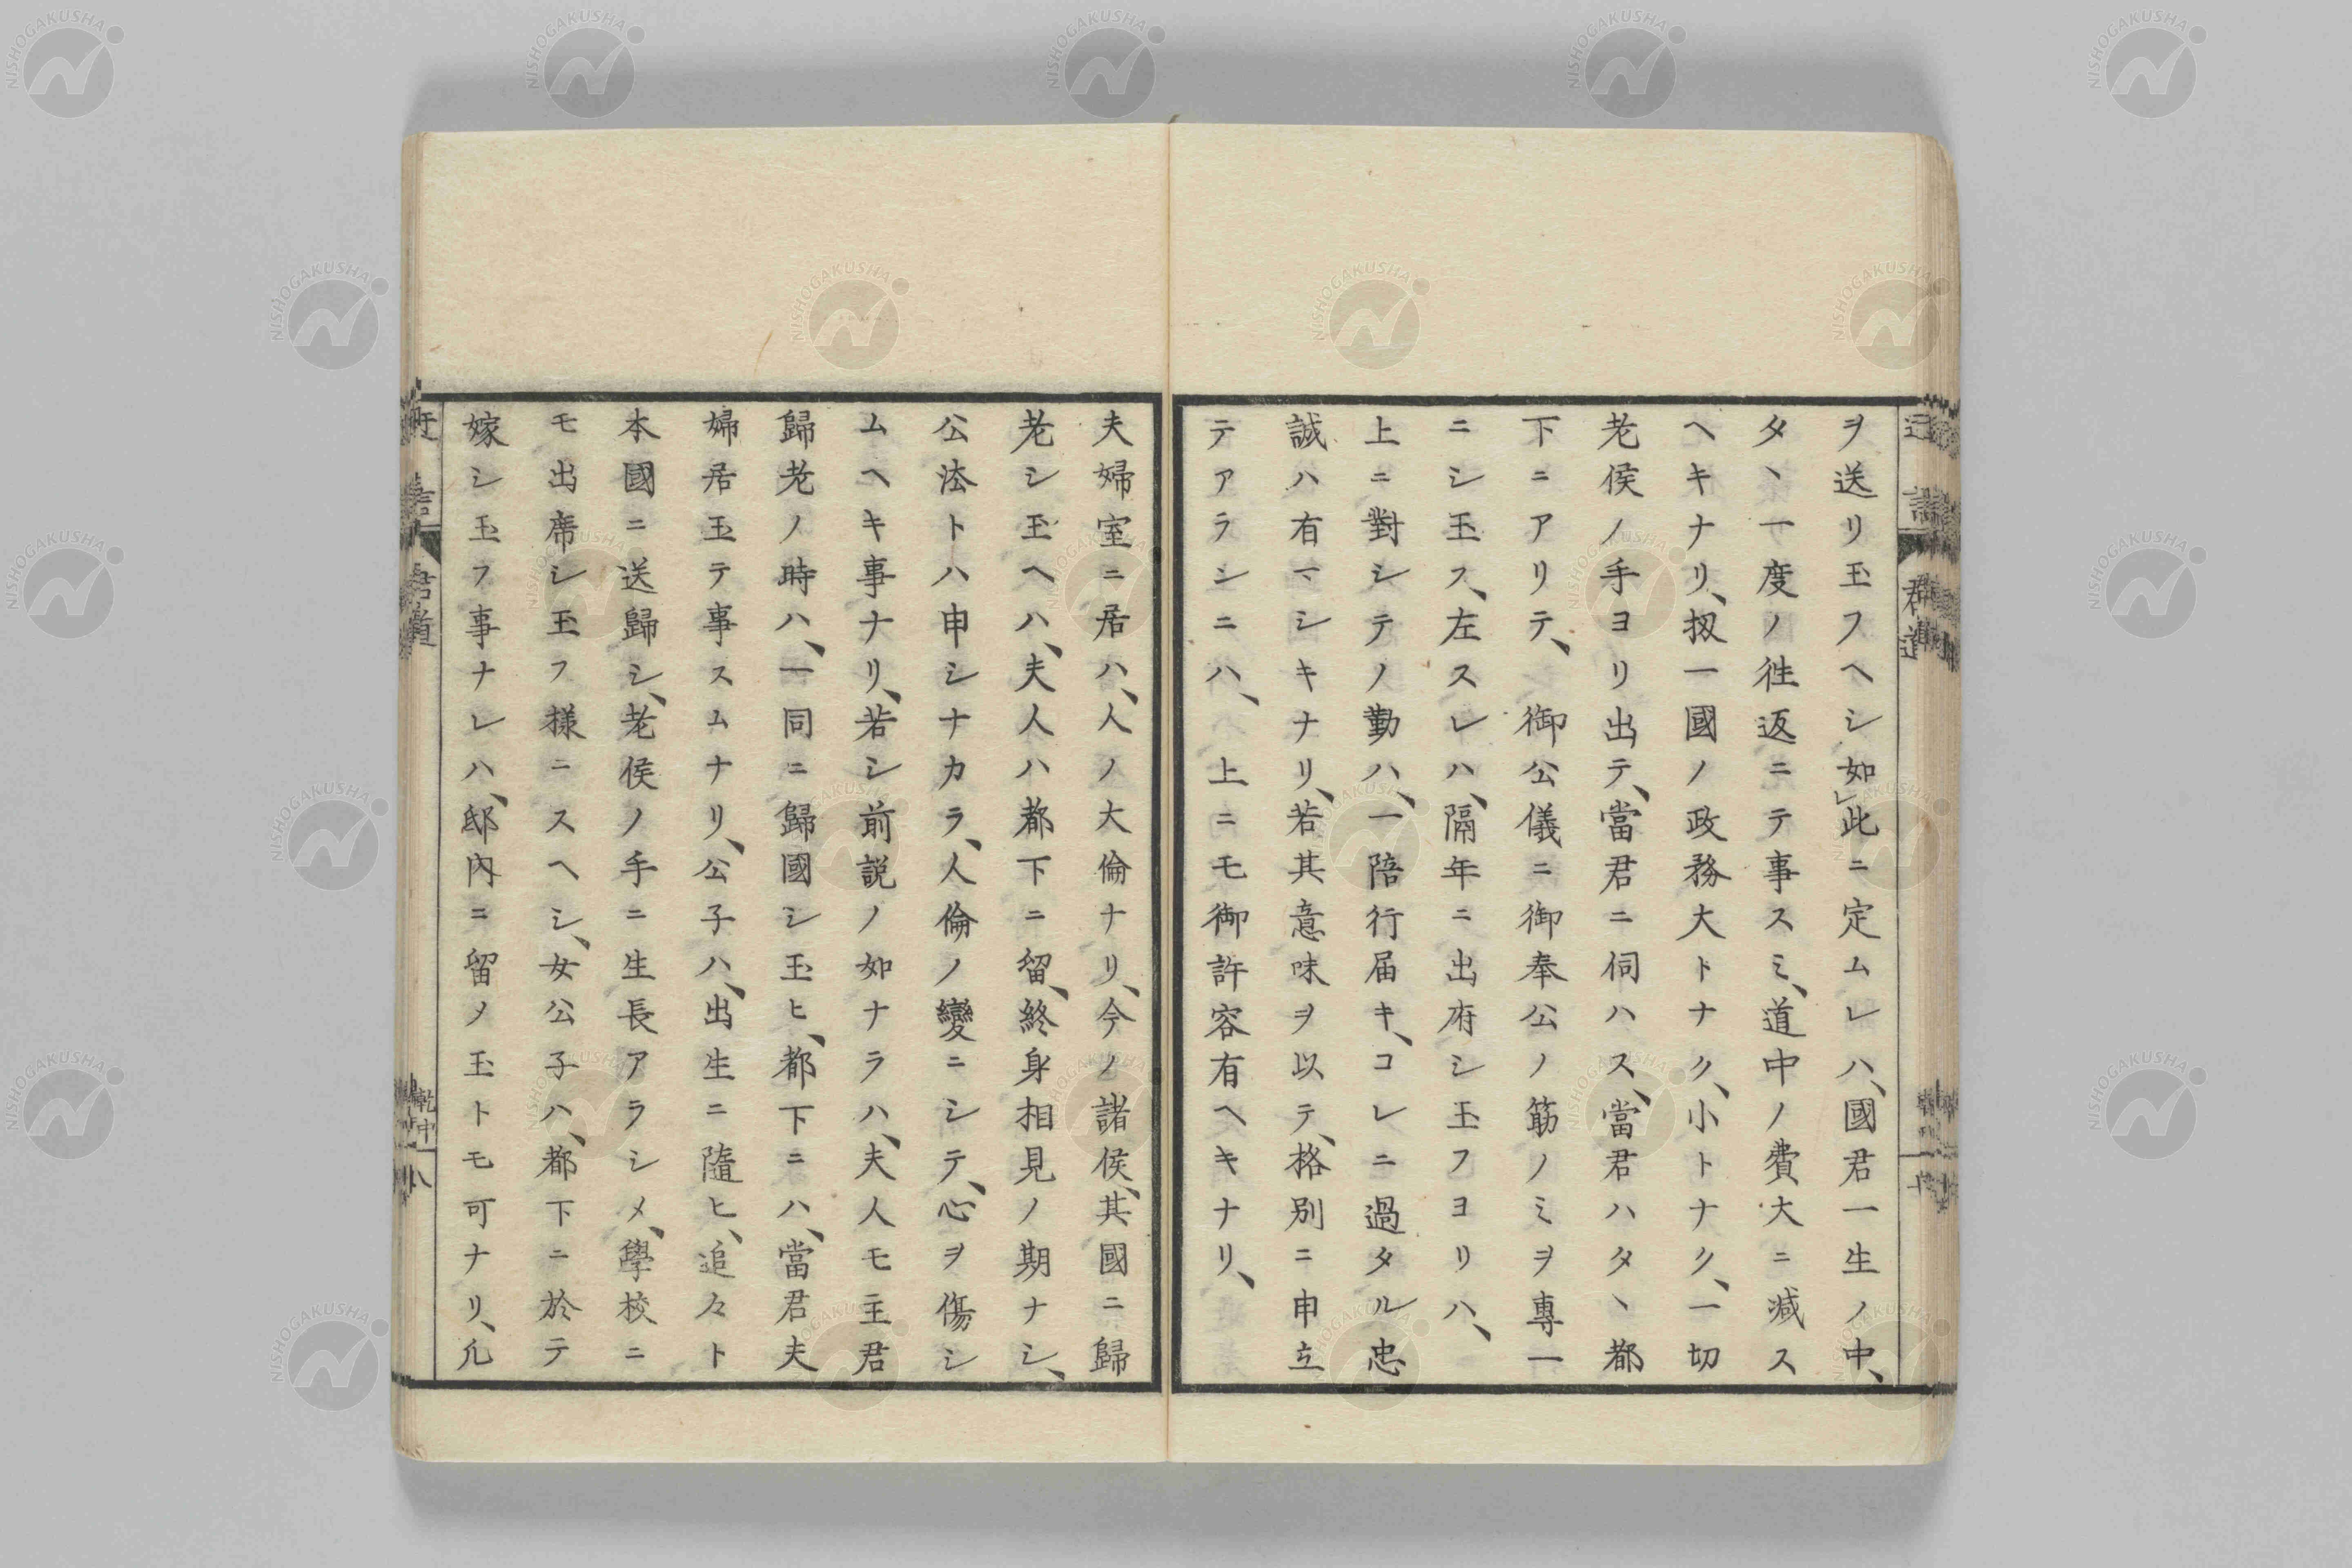 ヲ送リ玉フヘシ如レ此ニ定ムレハ、國君一生ノ中、
タヽ一度ノ徃返ニテ事スミ、道中ノ費大ニ减ス
ヘキナリ、扨一國ノ政務大トナク、小トナク、一切
老侯ノ手ヨリ出テ、當君ニ伺ハス、當君ハタヽ都
下ニアリテ、 御公儀ニ御奉公ノ筋ノミヲ專一
ニシ玉フ、左スレハ、隔年ニ出府シ玉フヨリハ、
上ニ對シテノ勤ハ、一陪行届キ、コレニ過タル忠
誠ハ有マシキナリ、若其意味ヲ以テ、格別ニ申立
テアラシニハ、 上ニモ御許容有ヘキナリ、
夫婦室ニ居ハ、人ノ大倫ナリ、今ノ諸侯、其國ニ歸
老シ玉ヘハ、夫人ハ都下ニ留、終身相見ノ期ナシ、
公法トハ申シナカラ、人倫ノ變ニシテ、心ヲ傷シ
ムヘキ事ナリ、若シ前説ノ如ナラハ、夫人モ主君
歸老ノ時ハ、一同ニ歸國シ玉ヒ、都下ニハ、當君夫
婦居玉テ事スムナリ、公子ハ、出生ニ隨ヒ、追々ト
本國ニ送歸シ、老侯ノ手ニ生長アラシメ、學校ニ
モ出席シ玉フ様ニスヘシ、女公子ハ、都下ニ於テ
嫁シ玉フ事ナレハ、邸內ニ留メ玉トモ可ナリ、凢
乾中 八
NISHOGAKUSHA